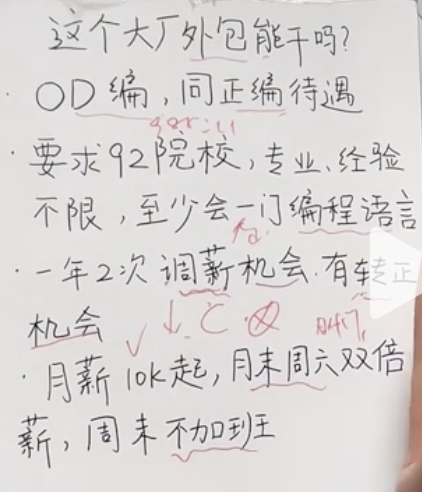 这个大厂外包能干吗?
· OD编,同正编待遇
· 要求92院校,专业、经验
不限,至少会一门编程语言
· 一年2次调薪机会.有转正
机会
· 月薪10k起,月末周六双倍
薪,周末不加班